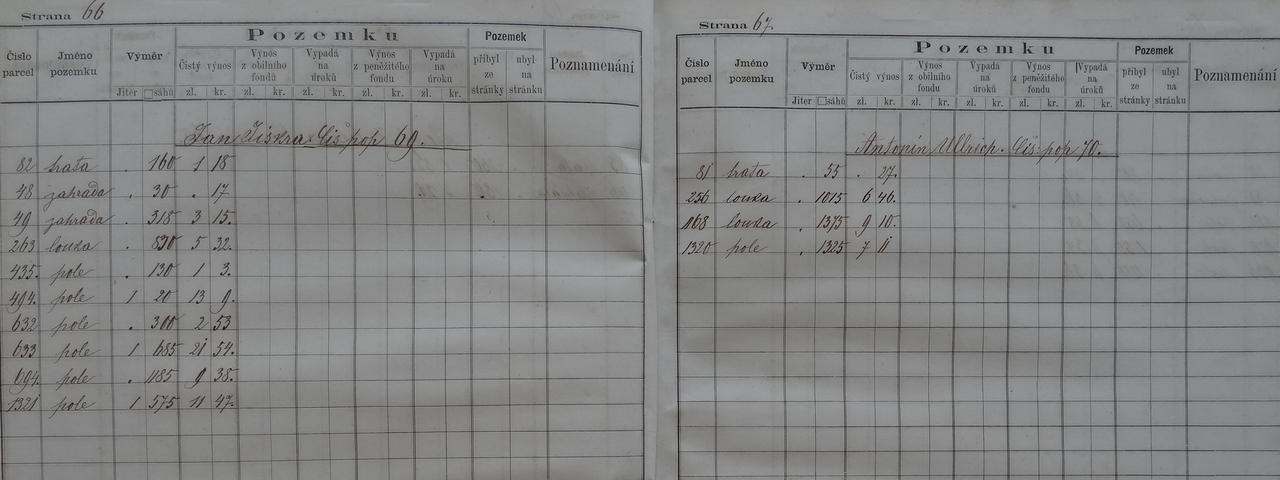 Strana 66
Číslo parcel
Jméno pozemku
Výměr
Pozemku
Pozemek
Poznamenání
Čistý výnos
Výnos z obilního fondu
Vypadá na úroků
Výnos z peněžitého fondu
Vypadá na úroku
přibyl ze stránky
ubyl na stránku
Jiter □sáhů zl. kr. zl. kr. zl. kr. zl. kr. zl. kr.
Jan Jiskra. Čís pop 69.
82 . 160 1 18
48 zahrada . 30 . 17
49 zahrada . 318 3 15.
263 louka . 830 5 32.
435. pole . 130 1 3.
494. pole 1 20 13 9.
632 pole . 300 2 53
633 pole 1 685 21 54.
694. pole . 1185 9 38.
1321 pole 1 575 11 47.
Strana 67.
Číslo parcel
Jméno pozemku
Výměr
Pozemku
Pozemek
Poznamenání
Čistý výnos
Výnos z obilního fondu
Vypadá na úroků
Výnos z peněžitého fondu
Vypadá na úroků
přibyl ze stránky
ubyl na stránku
Jiter □sáhů zl. kr. zl. kr. zl. kr. zl. kr. zl. kr.
Antonín Ullrich. Čís: pop 70.
81 . 55 . 27.
256 louka . 1015 6 46.
1168 louka . 1375 9 10.
1320 pole . 1325 7 11